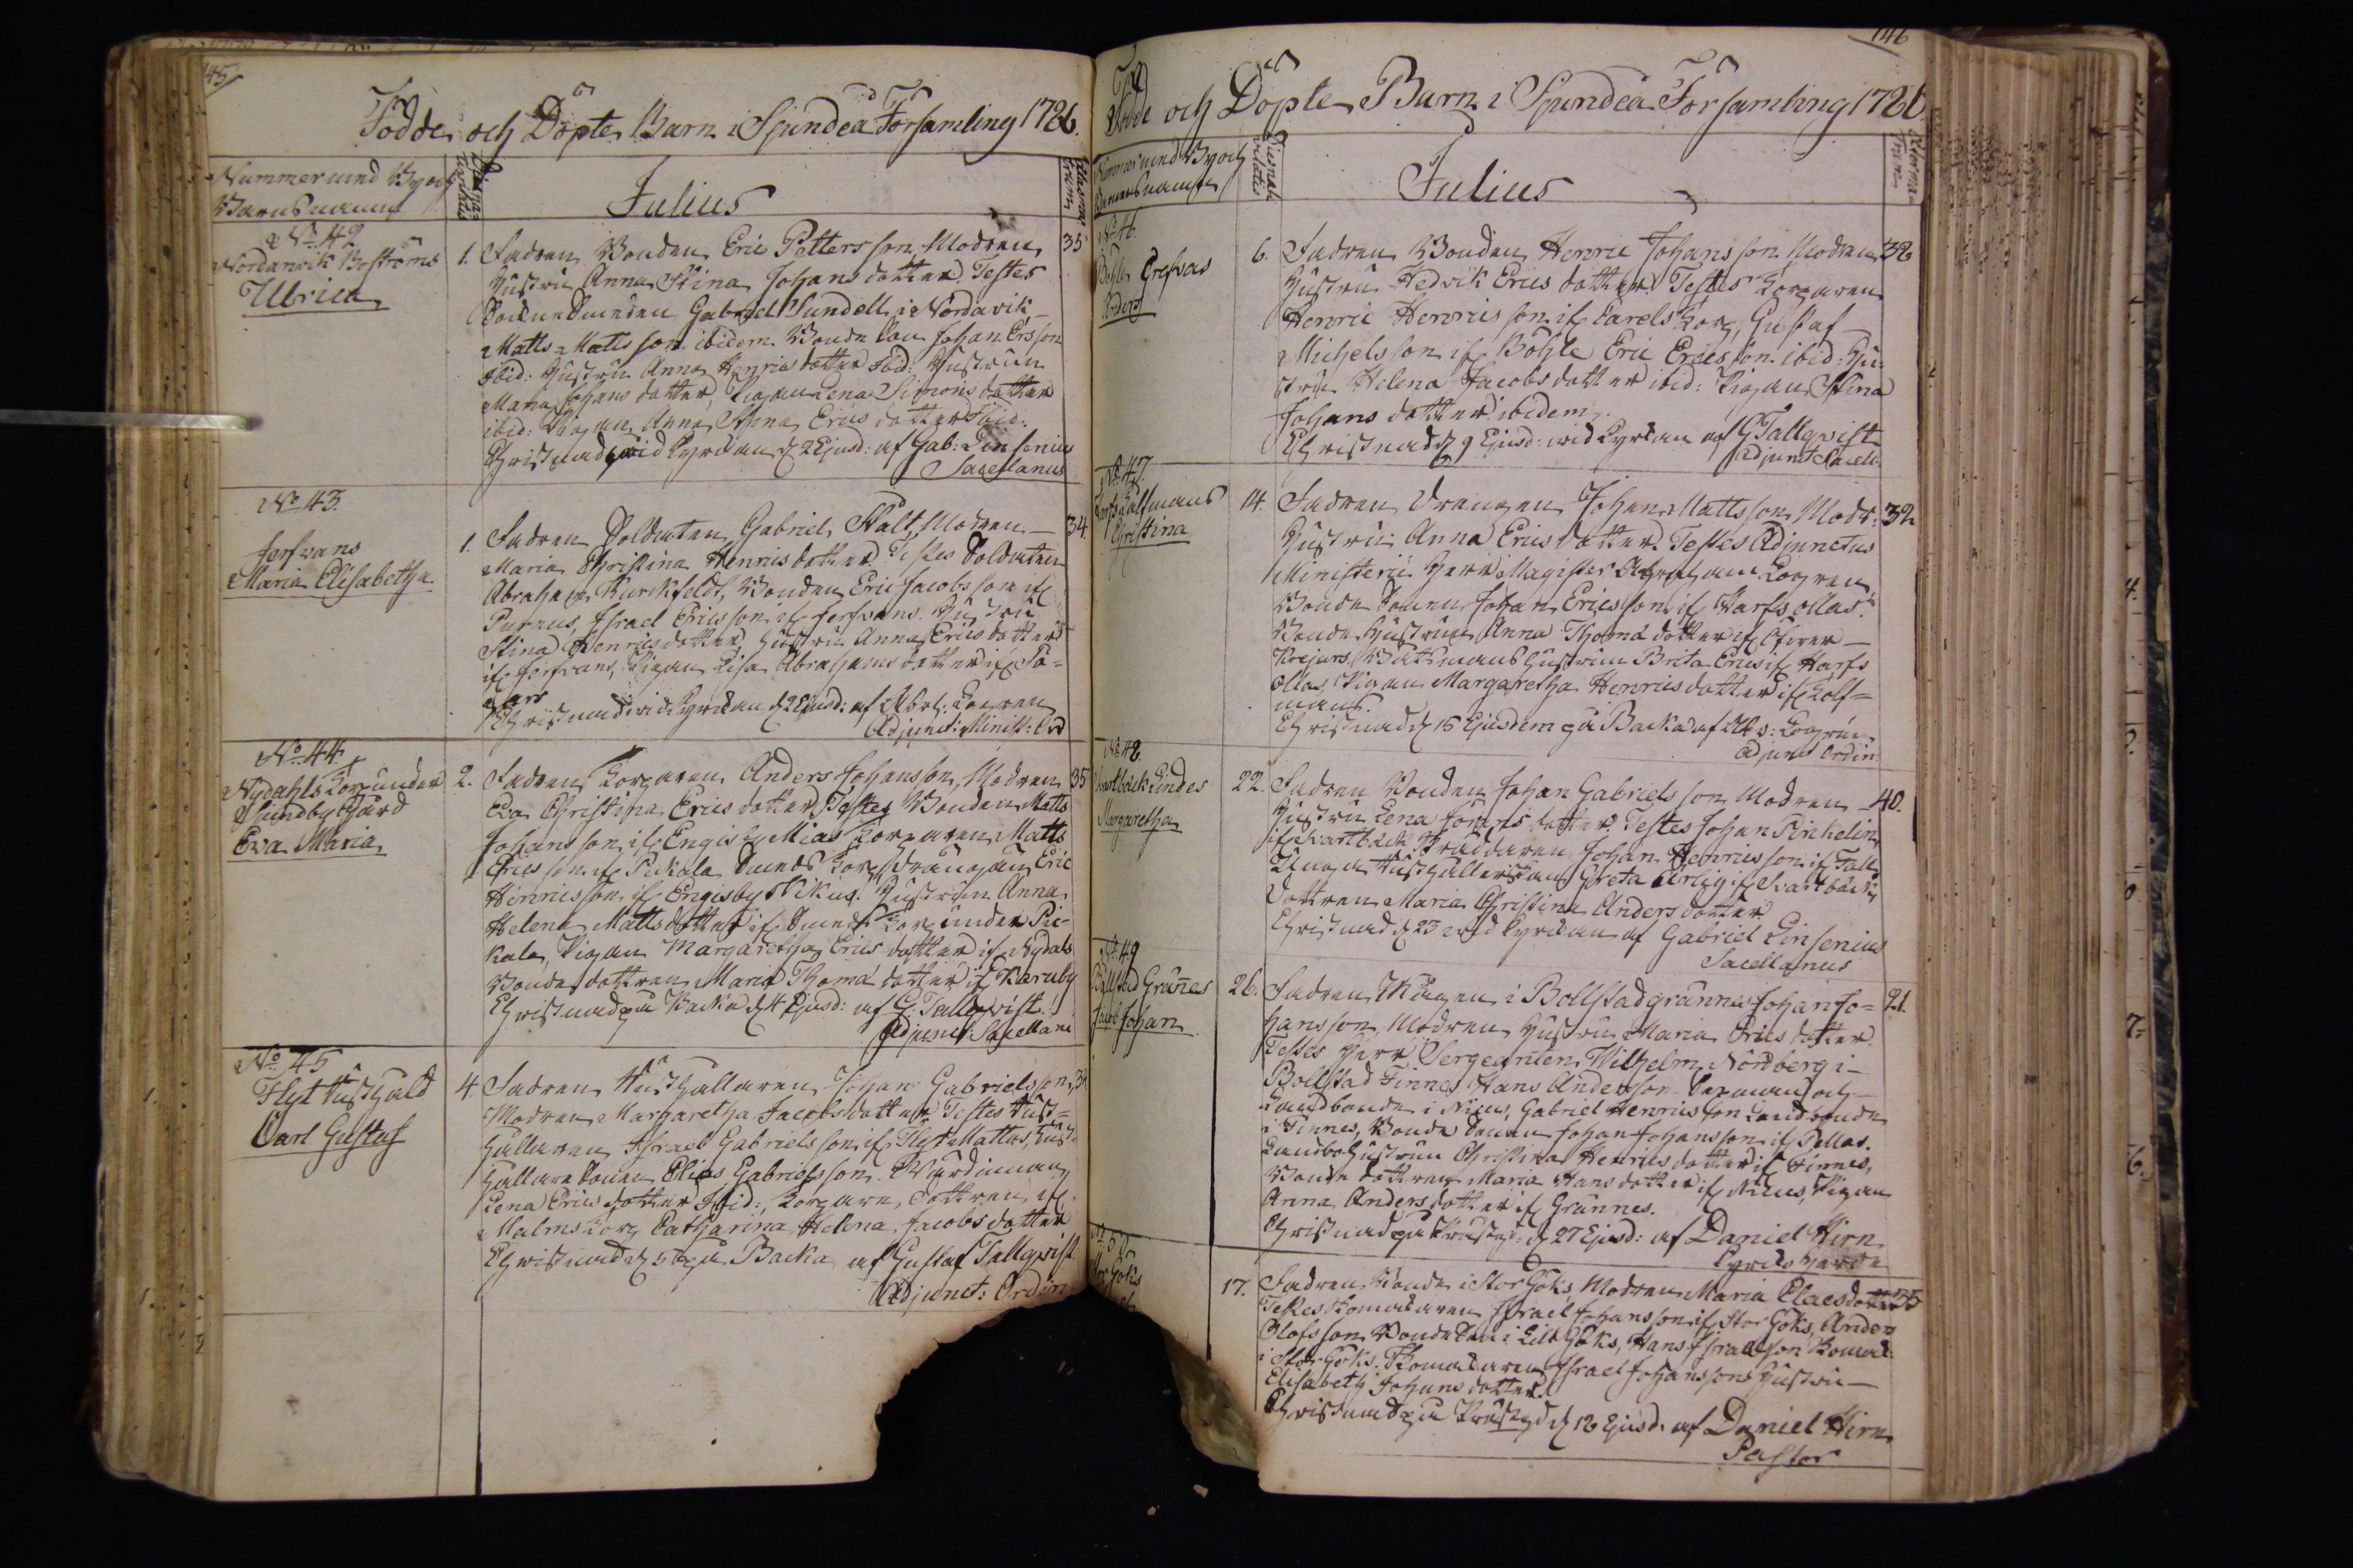 145
Födde och Döpte Barn i Sjundeå Församling 1786.
Nummer med By och
Barnsnamn
Julius
No 42
Nordanvik Boströms
Ulrica
1. Fadren Bonden Eric Petters son Modren 35
Hustru Anna Stina Johans dotter. Testes
Gabriel Sundell i Nordanvik
Matts Matts son ibidem Bonde Son Johan Ersson
Ibid: Hustru Anna Henrics dotter Ibid: Hustrun
Maria Johans dotter, Pigan Lena Simons dotter
ibid: Pigan Anna Stina Erics dotter Ibid:
Christnad wid Kyrckan d 2 Ejusd: af Gab: Linsenius
Sacellanus
No 43.
Jerfvans
Maria Elisabetha
1. Fadren Soldaten Gabriel Stålt, Modren 34.
Maria Christina Henrics dotter. Testes Soldaten
Abraham Kurckfeldt, Bonden Eric Jacobs son if
Purnus, Israel Erics son if Jerfvans. Hustru
Stina Henricsdotter, Hustru Anna Erics dotter
if Jerfvans, Pigan Lisa Abrahams dotter if
Christnad wid Kyrckan d 2 Ejusd: af Abrh: Logren
Adjunct: Minist: Ord
No 44.
Nydahls Torp under
Sjundby Gård
Eva Maria
2. Fadren Torparen Anders Johansson, Modren 35
Eva Christina Erics dotter Testes Bonden Matts
Johans son if Engisby Mias Torparen Matts
Erics son if Pickala Smeds Torp Drängen Eric
Henricsson if Engisby Wikus. Hustrun Anna
Helena Mattsdotter if Smeds Torp under Pic-
kala, Pigan Margaretha Erics dotter if Nydals
Bonde dottren Maria Thoma dotter if Karuby
Christnad på Backa d 4 Ejusd: af G: Tallqvist.
Adjunct: Sacellani
No 45
Flyt Hushåld
Carl Gustaf
4. Fadren Hushållaren Johan Gabriels son,
Modren Margaretha Jacobsdotter Testes Hus=
hållaren Israel Gabriels son if Flyt Mattas, Hus
hållare Sonen Elias Gabriels son.
Lena Erics dotter Ibid:, Torpare dottren if
Malms Torp Catharina Helena Jacobs dotter
Christnad d 5 på Backa af Gustaf Tallqvist
Adjunct: Ordin
146
Födde och Döpte Barn i Sjundeå Församling 1786.
Nummer med By och
Barnsnamn
Julius
No 46.
Böhle Grefvas
6. Fadren Bonden Henric Johans son Modren 32
Hustru Hedvik Erics dotter. Testes Torparen
Henric Henrics son if Carels Torp, Gustaf
Michels son if Böhle Eric Erics son ibid: Hu-
stru Helena Jacobs dotter ibid: Pigan Stina
Johans dotter ibidem.
Christnad d 9 Ejusd: wid Kyrckan af G Tallqvist
Adjunct Sacell:
No 47.
Christina
14. Fadren Drängen Johan Matts son Modr: 32
Hustru Anna Erics dotter. Testes Adjunctus
Ministerii Herr Magister Abraham Logren
Bonde Sonen Johan Ericsson if Harfs ollas.
Bonde Hustrun Anna Thoma dotter if
Krejars. Båtsmans Hustrun Brita Erics if Harfs
Ollas, Pigan Margaretha Henrics dotter if Kolf=
mans.
Christnad d 15 Ejusdem på Backa af Abr: Logrén
Adjunct Ordin:
No 48
Svartbäck Lindes
Margaretha
22. Fadren Bonden Johan Gabriels son Modren 40.
Hustru Lena dotter. Testes Johan Pinkelin
if Svartbäck Skräddaren Johan Henrics son if Fall
Unga Hushållerskan Greta Ärlig if Svartbäck
dottren Maria Christina Anders dotter
Christnad d 23 wid Kyrckan af Gabriel Linsenius
Sacellanus
No 49
Bollstad Grännes
Jacob Johan
26. Fadren Mågen i Bollstad grännes Johan Jo= 21.
hans son Modren Hustru Maria Erics dotter.
Testes Herr Sergeanten Wilhelm Nordberg i
Bollstad Finnes Hans Anderson Sexman och
Landbonde i Nicus, Gabriel Henrics son Landbonde
i Finnes, Bonde Sonen Johan Johansson if Pellas.
Landbo Hustrun Christina Henrics dotter if Finnes,
Bonde dottren Maria Hans dotter if Nicus, Pigan
Anna Anders dotter if Grännes.
Christnad på Prästgd: d 27 Ejusd: af Daniel Hirn
Kyrcko herde
No 50
Stor Göks
17. Fadren Bonde i Stor Göks, Modren Maria Claesdotter 35
Testes Skomakaren Israel Johansson if Stor Göks, Anders
Olofs son Bonde Son i Lill Göks, Hans Israelson Skomak:
i Stor Göks. Skomakaren Israel Johanssons Hustru
Elisabeth Johans dotter.
Christnad på Prästgd d 18 Ejusd. af Daniel Hirn
Pastor